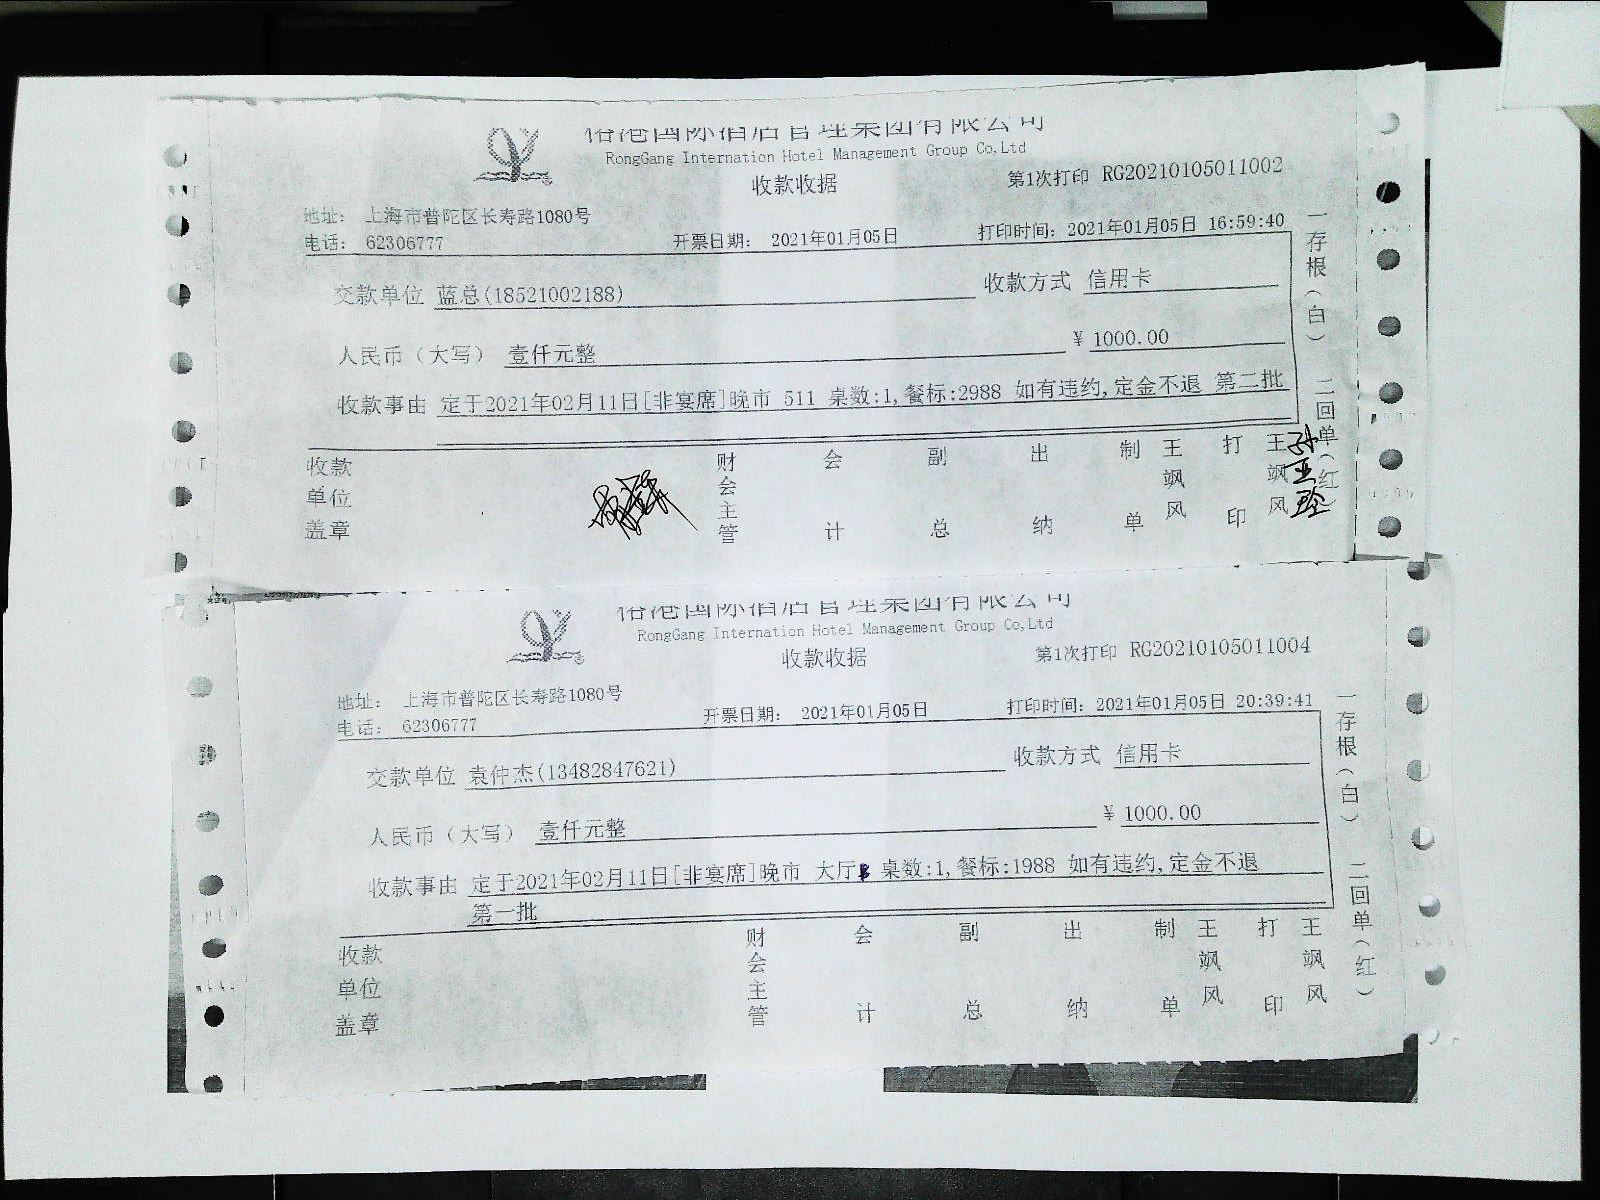 国际酒店管理集团有限公司
RongGang Internation Hotel Management Group Co,Ltd
收款收据
第1次打印 RG20210105011002
地址： 上海市普陀区长寿路1080号
电话： 62306777
开票日期： 2021年01月05日
打印时间：2021年01月05日 16:59:40
交款单位 蓝总(18521002188)
收款方式 信用卡
人民币（大写） 壹仟元整
¥ 1000.00
收款事由 定于2021年02月11日[非宴席]晚市 511 桌数:1,餐标:2988 如有违约,定金不退 第二批
收款单位盖章
财会主管 会计 副总 出纳 制单 王飒风 打印 王飒风
一存根（白） 二回单（红）
国际酒店管理集团有限公司
RongGang Internation Hotel Management Group Co,Ltd
收款收据
第1次打印 RG20210105011004
地址： 上海市普陀区长寿路1080号
电话： 62306777
开票日期： 2021年01月05日
打印时间：2021年01月05日 20:39:41
交款单位 袁仲杰(13482847621)
收款方式 信用卡
人民币（大写） 壹仟元整
¥ 1000.00
收款事由 定于2021年02月11日[非宴席]晚市 大厅 桌数:1,餐标:1988 如有违约,定金不退
第一批
收款单位盖章
财会主管 会计 副总 出纳 制单 王飒风 打印 王飒风
一存根（白） 二回单（红）